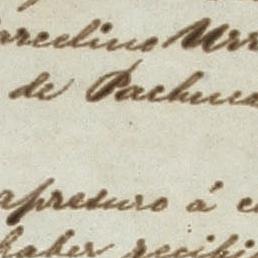 arcelino Urr
de Pachuca
apresuro á c
haber recibi